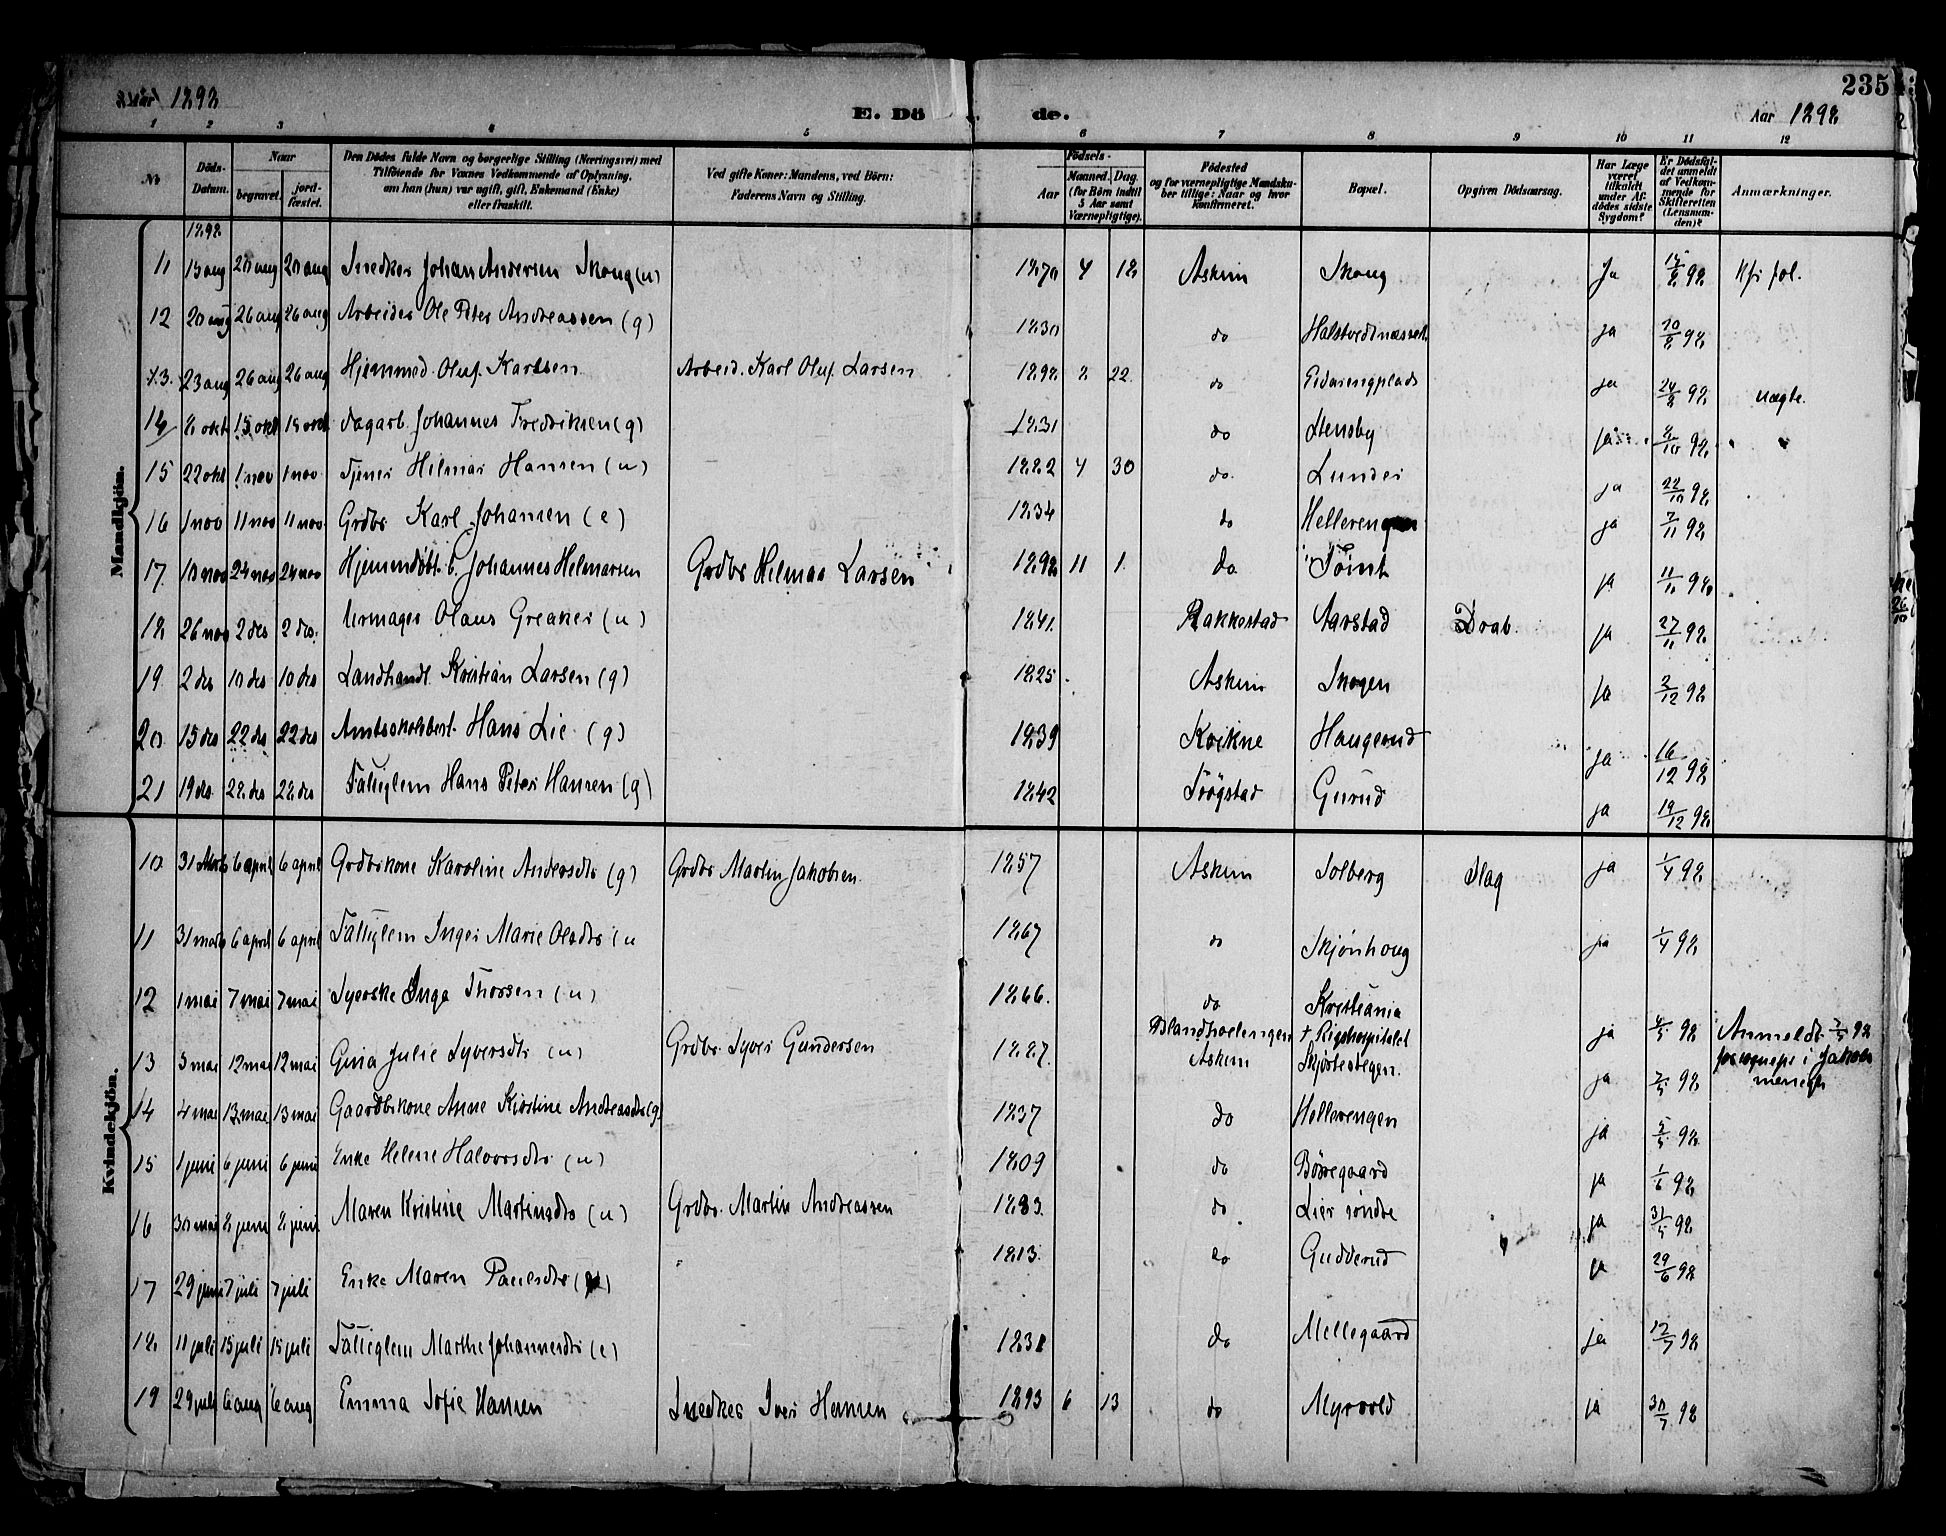 Aar 1898
E. Döde.
Aar 1898
235
1 2 3 4 5 6 7 8 9 10 11 12
No
Döds-Datum.
Naar
begravet.
jord-fæstet.
Den Dödes fulde Navn og borgerlige Stilling (Næringsvei) med Tilföiende for Voxnes Vedkommende af Oplysning, om han (hun) var ugift, gift, Enkemand (Enke) eller fraskilt.
Ved gifte Koner: Mandens, ved Börn: Faderens Navn og Stilling.
Födsels-
Aar
Maaned. Dag. (for Börn indtil 5 Aar samt Værnepligtige).
Födested og for værnepligtige Mandskaber tillige: Naar og hvor Konfirmeret.
Bopæl.
Opgiven Dödsaarsag.
Har Læge været tilkaldt under Afdödes sidste Sygdom?
Er Dödsfaldet anmeldt af Vedkommende for Skifteretten (Lensmanden)?
Anmærkninger.
Mandkjön.
1898
11 15 aug 20 aug 20 aug Snedker Johan Andersen Skoug (u) 1870 4 18 Askim Skoug Ja 98
12 20 aug 26 aug 26 aug Arbeider Ole Peter Andreassen (g) 1830 do ja 20/8 98
13. 23 aug 26 aug 26 aug Hjemmed. Oluf Karlsen Arbeid. Karl Oluf Larsen 1898 2 22 do ja 24/8 98 uægte.
14 8 okt 15 okt 15 okt Dagarb. Johannes Fredriksen (g) 1831 do Stensby ja 8/10 98
15 22 okt 1 nov 1 nov Tjener Hilmar Hansen (u) 1882 4 30 do. Lunder ja 22/10 98
16 1 nov 11 nov 11 nov Grdbr Karl Johansen (e) 1834 do Hellerengen ja 7/11 98
17. 10 nov 24 nov 24 nov Hjemmedöbt b. Johannes Helmarsen Grdbr Hilmar Larsen 1898 11 1 do Tømt ja 98
18 26 nov 2 des 2 des. Urmager Olaus Greaker (u) 1841. Rakkestad Aarstad Drab. ja 27/11 98
19. 2 des 10 des 10 des Landhandl. Kristian Larsen (g) 1825 Askim Skogen ja 3/12 98
20. 15 des 22 des 22 des Amtsskolebest. Hans Lie (g) 1839 Kvikne Haugerud ja 16/12 98
21 19 des 28 des 28 des Fattiglem Hans Peter Hansen (g) 1842 Trøgstad Gurud ja 19/12 98
Kvindekjön.
10 31 Mrts 6 april 6 april Grdbrkone Karoline Andersdtr (g) Grdbr Martin Jakobsen 1857 Askim Solberg Slag ja 1/4 98
11 31 mars 6 april 6 april Fattiglem Inger Marie Olsdtr (u 1867 do Skjønhoug ja 1/4 98
12 1 mai 7 mai 7 mai Syerske Inga Thorsen (u) 1866. do Kristiania † Rigshospitalet ja 98 Anmeldt 98 i Jakobs menigh
13 5 mai 12 mai 12 mai Gina Julie Syversdtr (u) Grdbr. Syver Gundersen 1887. Askim ja 98
14 4 mai 13 mai 13 mai Gaardbrkone Anne Kirstine Andreasdtr (g) 1837 do Hellerengen ja 5/5 98
15 1 juni 6 juni 6 juni Enke Helene Halvorsdtr (u) 1809 do Börregaard ja 1/6 98
16 30 mai 8 juni 8 juni Maren Kristine Martinsdtr (u) Grdbr. Martin Andreassen 1883. do Lier søndre ja 31/5 98
17 29 juni 7 juli 7 juli Enke Maren Paulsdtr 1813. do Gudderud ja 29/6 98
18. 11 juli 15 juli 15 juli Fattiglem Marthe Johannesdtr (e) 1831 do Mellegaard ja 12/7 98
19 29 juli 6 aug 6 aug Emma Sofie Hansen Snedker Iver Hansen 1893 6 13 do Myrvold ja 30/7 98